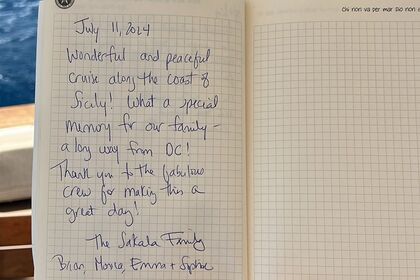 July 11, 2024
Wonderful and peaceful
cruise along the coast of
Sicily! What a special
memory for our family -
a long way from DC!
Thank you to the fabulous
crew for making this a
great day!
The Sakala Family
Brian, Emma + Sophie
Chi non va per mar Dio non